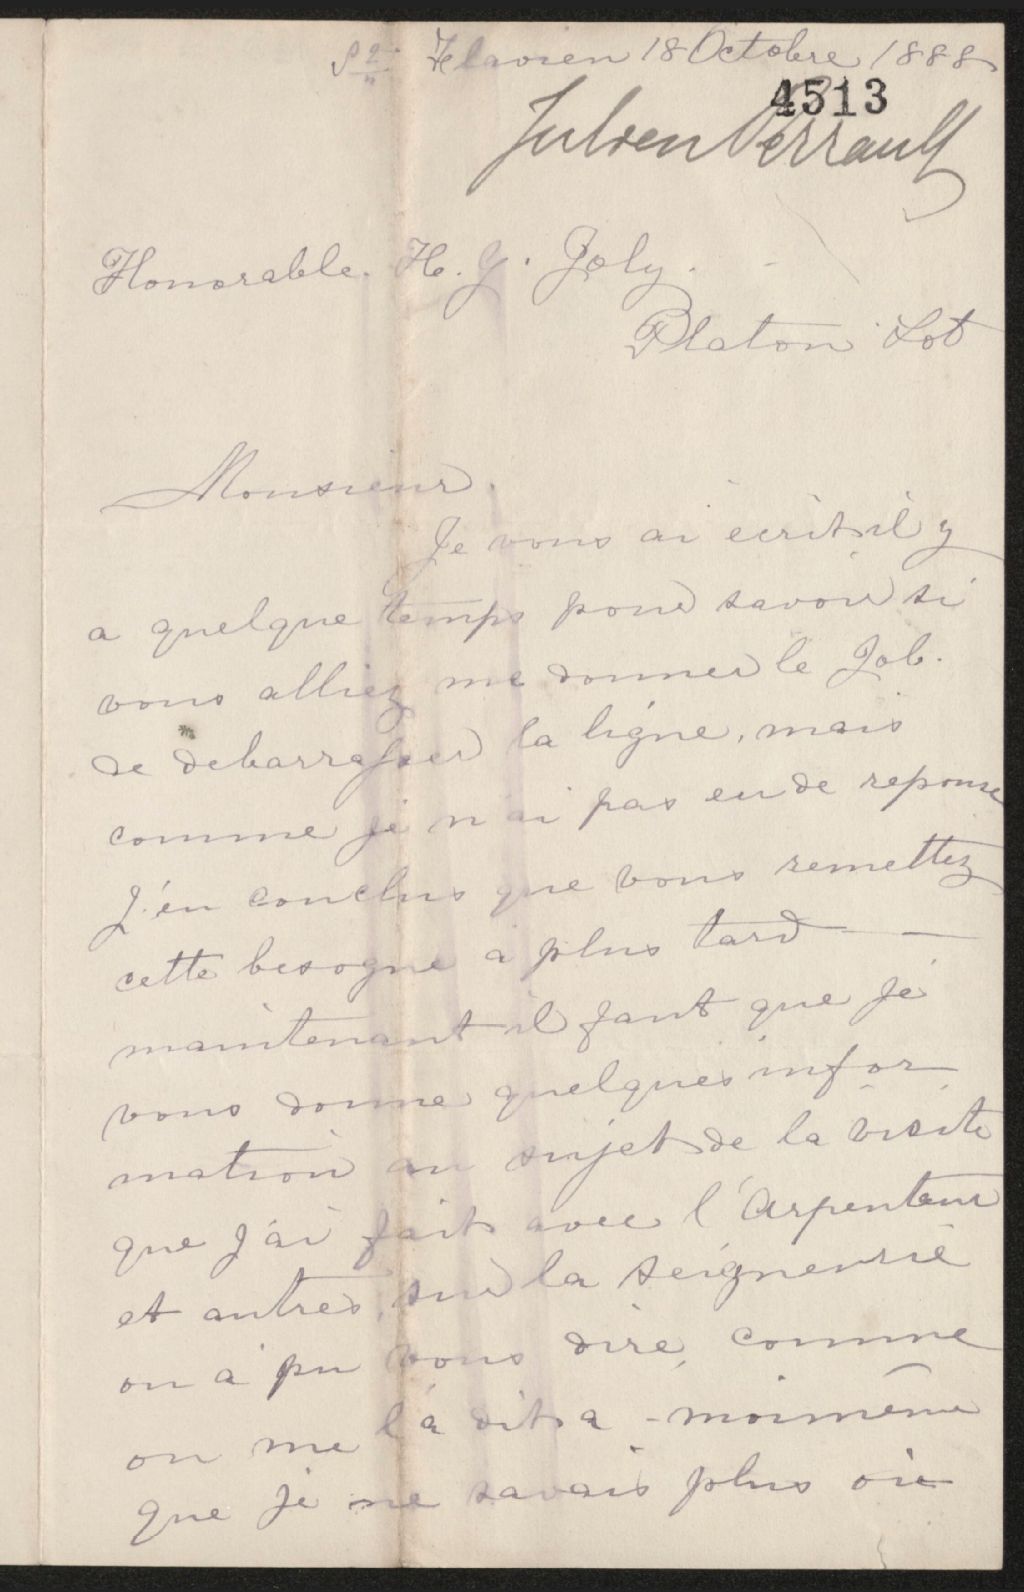 St Flavien 18 Octobre 1888
4513
Julien Perrault
Honorable. H. G. Joly.
Platon Lot
Monsieur.
Je vous ai ecrit il y
a quelque temps pour savoir si
vous alliez me donner le Job.
de debarrasser la ligne, mais
comme je n ai pas eu de reponse
J'en conclus que vous remettez
cette besogne a plus tard —
maintenant il faut que je
vous donne quelques infor
mation au sujet de la visite
que j'ai fait avec l'Arpenteur
et autres, sur la seigneurie
on a pu vous dire, comme
on me l'a dit a - moimême
que je ne savais plus où